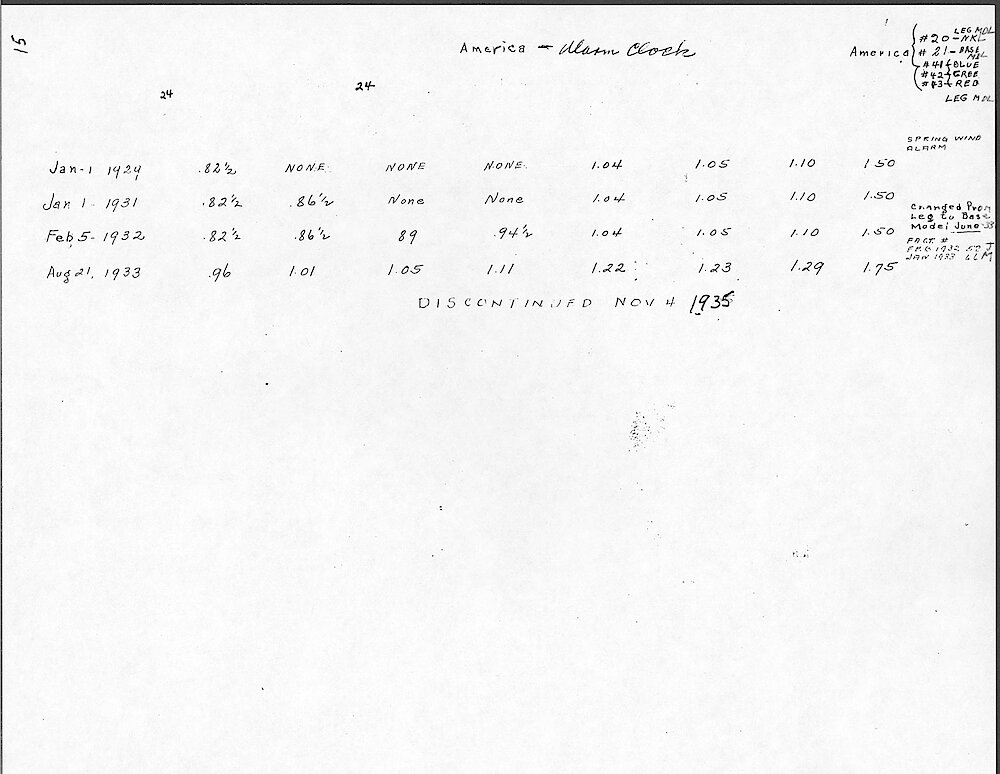 15
America - Alarm Clock
America
LEG MDL
#20-NKL
#21-BASE MDL
#41-BLUE
#42-GREE
#43-RED
LEG MDL
24 24
SPRING WIND
ALARM
Jan-1 1929 .82½ NONE NONE NONE 1.04 1.05 1.10 1.50
Jan 1-1931 .82½ .86½ None None 1.04 1.05 1.10 1.50
Changed From
Leg to Base
Model June
Feb, 5-1932 .82½ .86½ 89 .94½ 1.04 1.05 1.10 1.50
FACT #
FEB 1932
JAN 1933
Aug 21, 1933 .96 1.01 1.05 1.11 1.22 1.23 1.29 1.75
DISCONTINUED NOV 4 1935